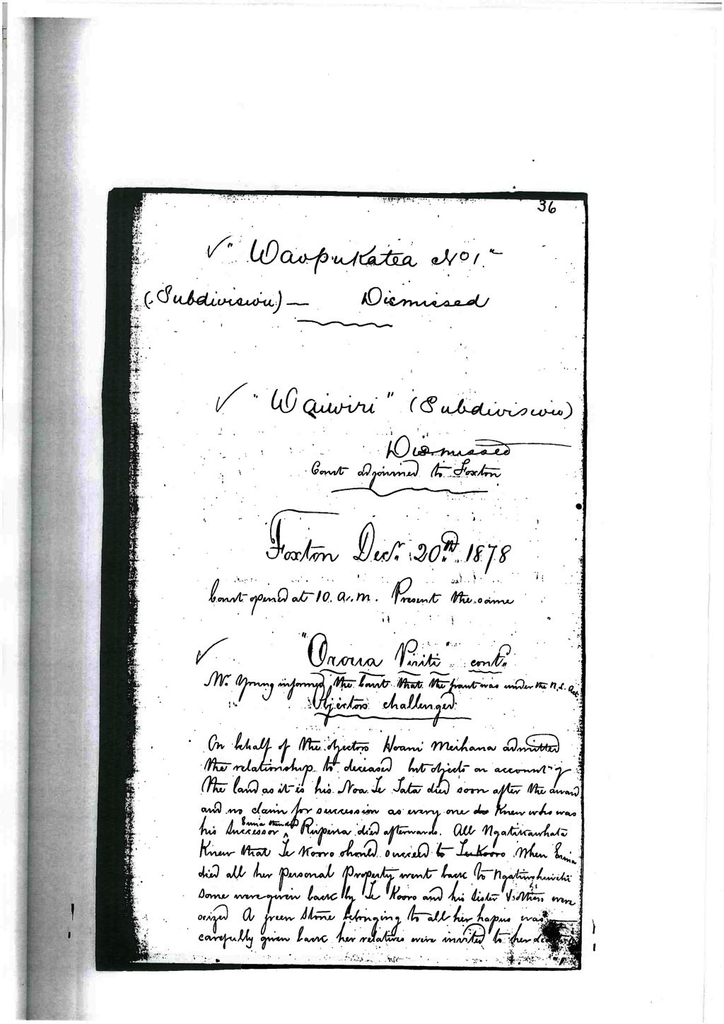 36
✓ "Waopukatea No 1"
(Subdivision) — Dismissed
✓ "Waiwiri" (Subdivision)
Dismissed
Court adjourned to Foxton
Foxton Decr. 20th 1878
Court opened at 10. A.m. Present the same
✓ "Oroua Piriti" cont.
Mr. Young informed the Court that the grant was under the N.L. Act
Objectors challenged
On behalf of the objectors Hoani Meihana admitted
the relationship to deceased but objects on account of
the land as it is his. Noa Te Tata died soon after the award
and no claim for succession as every one knew who was
his Successor Enia then Ripina died afterwards. All Ngatikauhata
Knew that Te Kooro should succeed to When Enia
died all her Personal Property went back to
Some were given back by Te Kooro and his Sister others were
seized A green Stone belonging to all her hapus was
carefully given back her relatives were invited to her